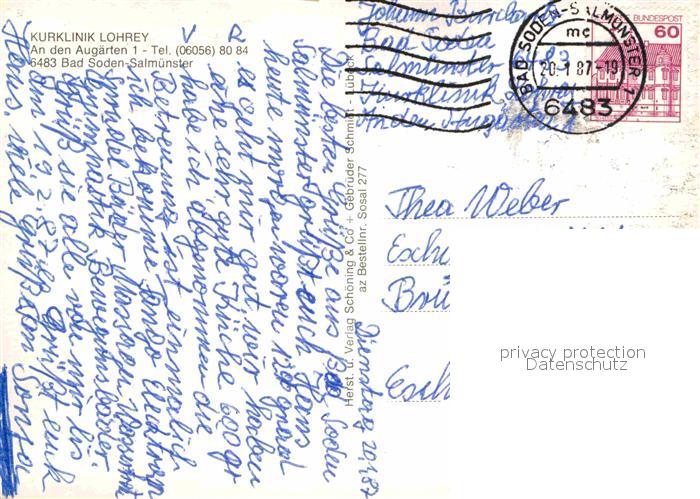 KURKLINIK LOHREY
An den Augärten 1 - Tel. (06056) 80 84
6483 Bad Soden-Salmünster
V R
Dienstag 20.1.87
Die besten Grüße aus Bad Soden
Salmünster grüßt euch Hans
heute morgen waren 120 grad
es geht mir gut wir haben
eh sehr gute Küche 600gr
habe ich abgenommen die
Betreuung ist einmalich
ich bekomme Fango Elecktro
Sprudel Bäder Massagen Wasser
Gymnastik Bewegungsbäder.
Grüß sie alle von mir bis
zum 19.2.87 Es Grüßt euk
Hans. Viel grüße an
Herst. u. Verlag Schöning & Co + Gebrüder Schmidt - Lübeck
az Bestellnr. Sosal 277
Johann
Bad Soden
Salmünster
Kurklinik
An den Augärten 1
BAD SODEN-SALMÜNSTER 1
mc
20.-1.87-19
6483
DEUTSCHE BUNDESPOST
60
Thea Weber
Esch
Brü
Esch
privacy protection
Datenschutz